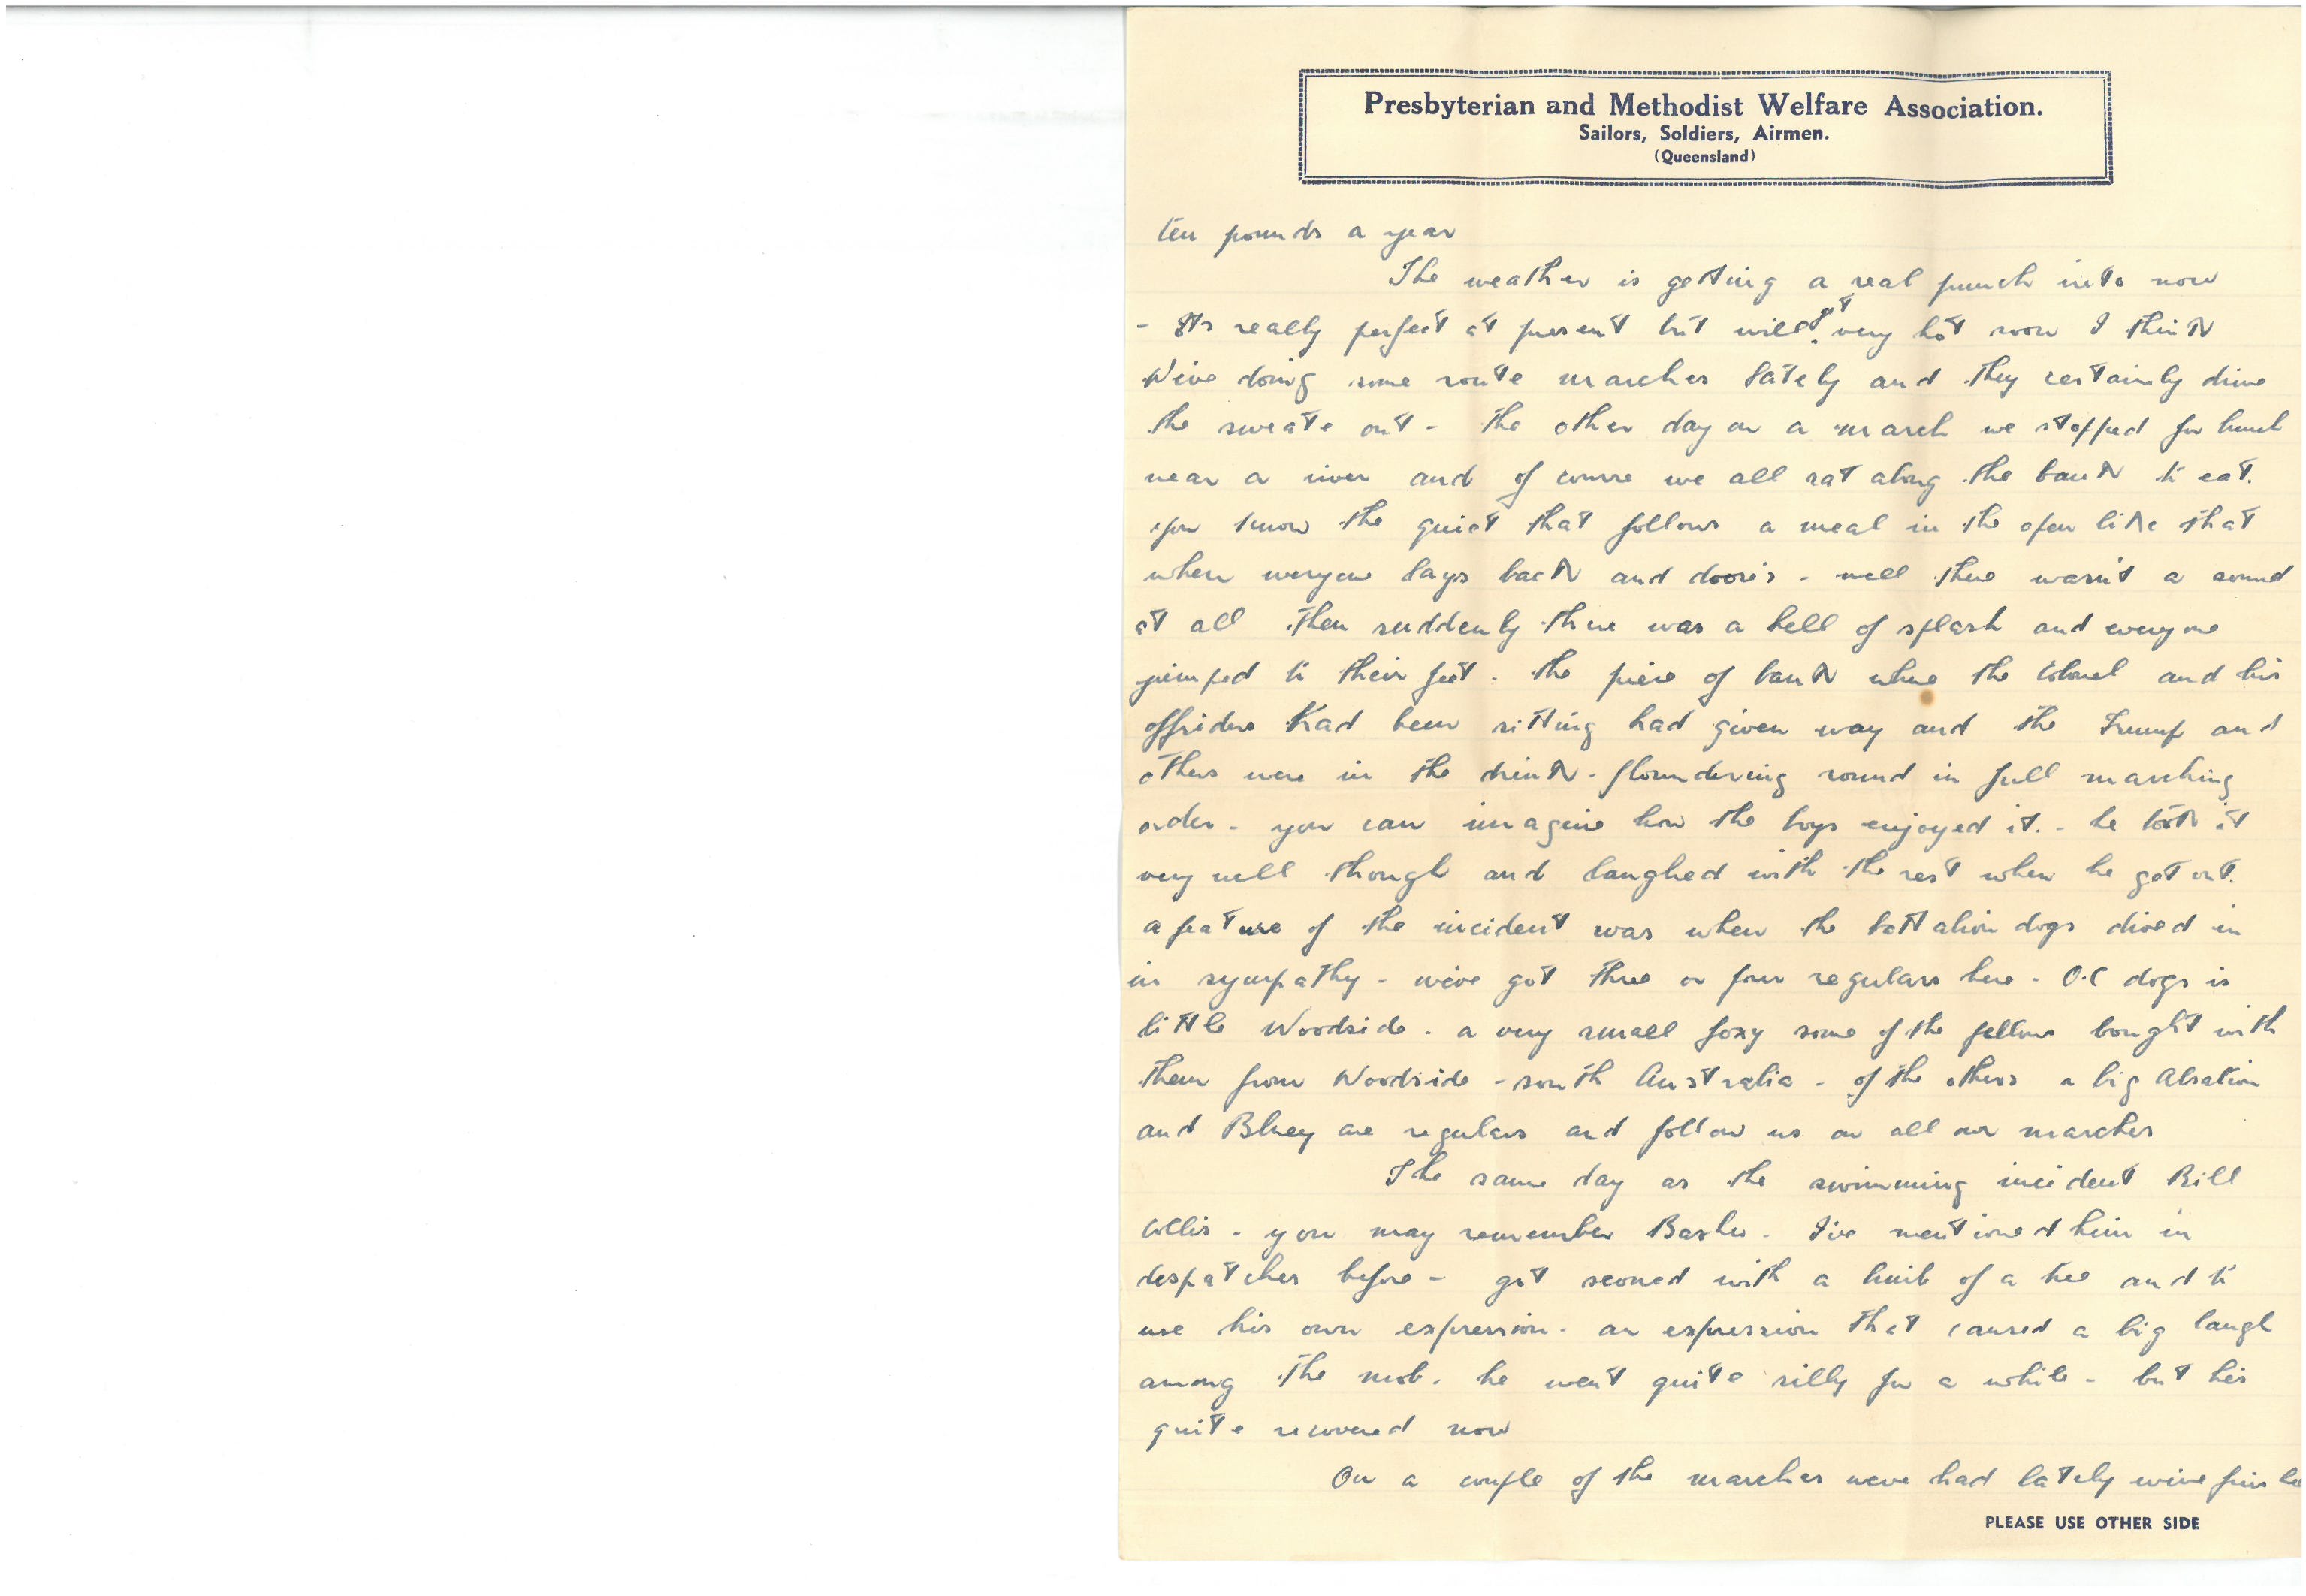 Presbyterian and Methodist Welfare Association.
Sailors, Soldiers, Airmen.
(Queensland)
ten pounds a year
The weather is getting a real punch into now
- Its really perfect at present but will get very hot soon I think
We've doing some route marches lately and they certainly drive
the sweate out - the other day on a march we stopped for lunch
near a river and of course we all sat along the bank to eat.
you know the quiet that follows a meal in the open like that
when everyone lays back and doozes - well there wasn't a sound
at all then suddenly there was a hell of splash and everyone
jumped to their feet - the piece of bank where the Colonel and his
had been sitting had given way and the Trump and
others were in the drink - floundering round in full marching
order - you can imagine how the boys enjoyed it. - he took it
very well though and laughed with the rest when he got out.
a feature of the incident was when the battalion dogs dived in
in sympathy - we've got three or four regulars here - O.C dogs is
little Woodside - a very small foxy some of the fellows bought with
them from Woodside - south Australia - of the others a big Alsation
and Bluey are regulars and follow us on all our marches
The same day as the swimming incident Bill
Collis - you may remember Basher - I've mentioned him in
despatches before - got sconed with a limb of a tree and to
use his own expression - an expression that caused a big laugh
among the mob. he went quite silly for a while - but hes
quite recovered now
On a couple of the marches weve had lately weve
PLEASE USE OTHER SIDE